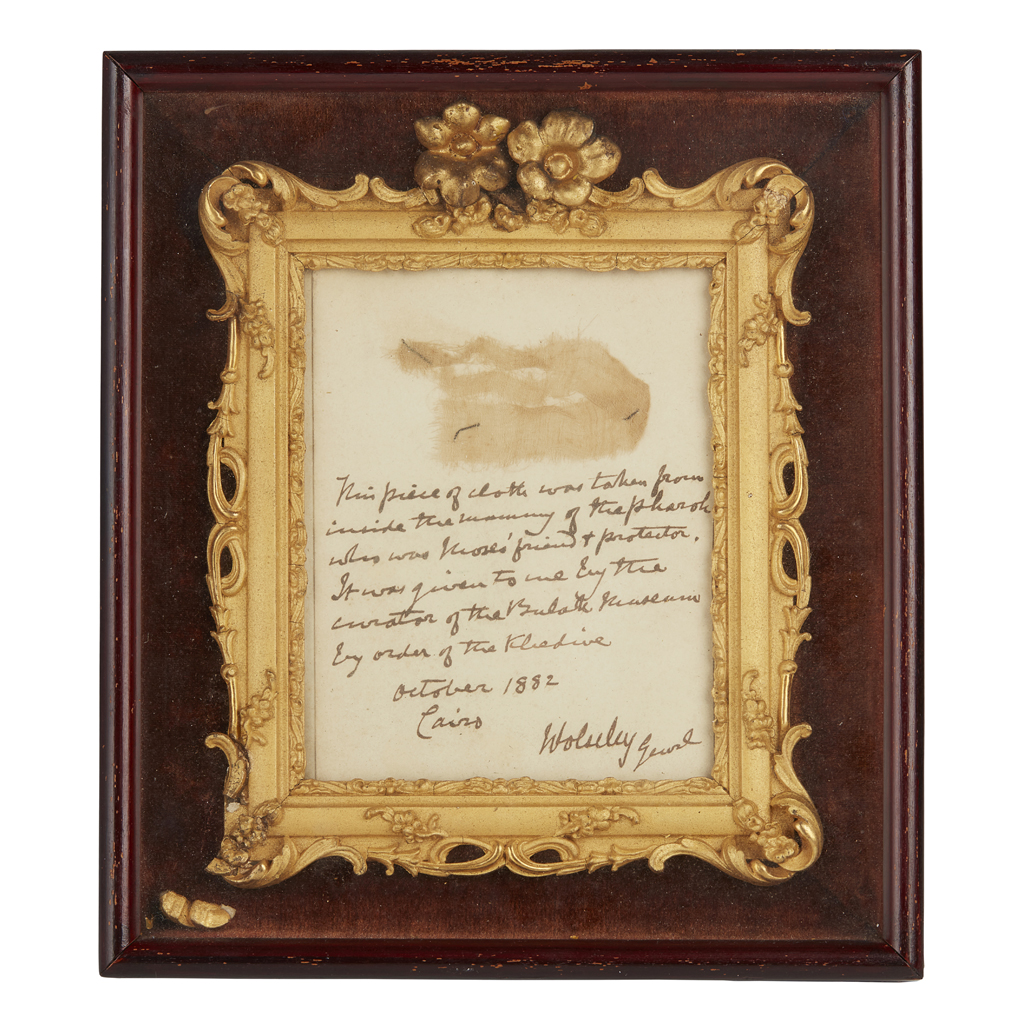 This piece of cloth was taken from
inside the mummy of the Pharoh
who was Moses' friend & protector.
It was given to me by the
curator of the Bulak Museum
by order of the Khedive
October 1882
Cairo
Wolseley Genrl